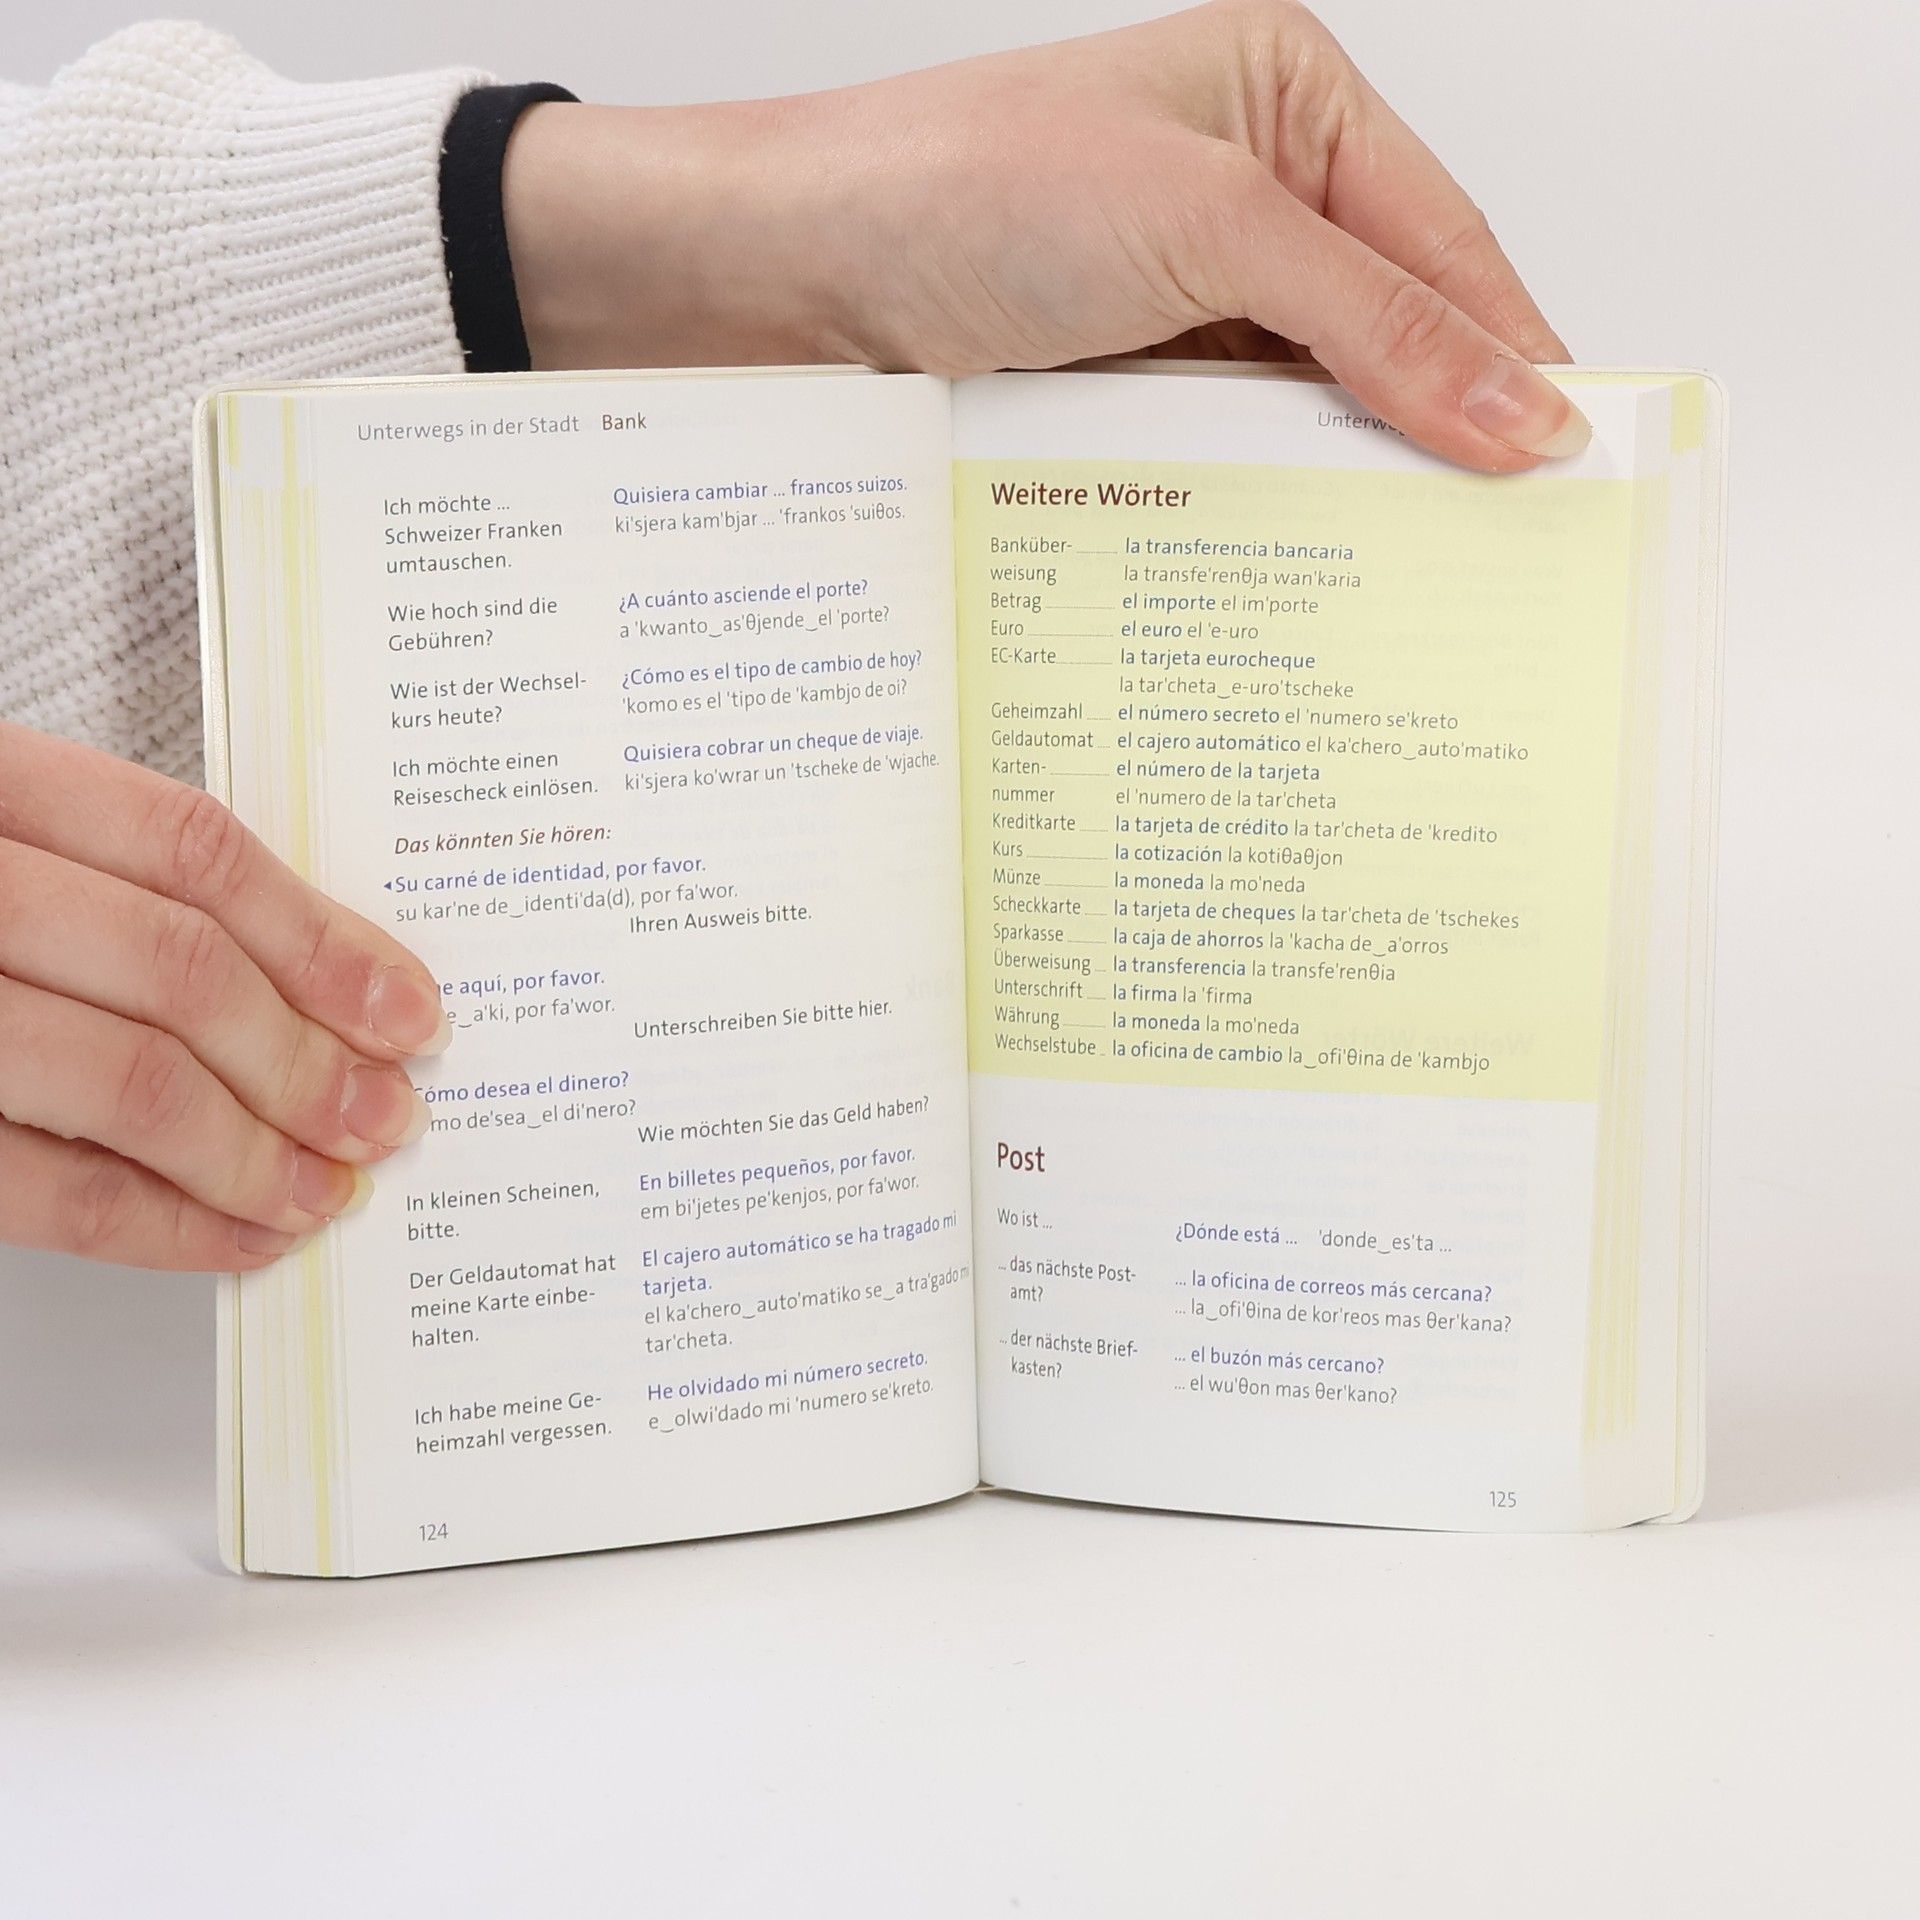 Unterwegs in der Stadt Bank
Ich möchte ...
Schweizer Franken
umtauschen.
Quisiera cambiar ... francos suizos.
ki'sjera kam'bjar ... 'frankos 'suiθos.
Wie hoch sind die
Gebühren?
¿A cuánto asciende el porte?
a 'kwanto‿as'θjende‿el 'porte?
Wie ist der Wechsel-
kurs heute?
¿Cómo es el tipo de cambio de hoy?
'komo es el 'tipo de 'kambjo de oi?
Ich möchte einen
Reisescheck einlösen.
Quisiera cobrar un cheque de viaje.
ki'sjera ko'wrar un 'tscheke de 'wjache.
Das könnten Sie hören:
◂Su carné de identidad, por favor.
su kar'ne de‿identi'da(d), por fa'wor.
Ihren Ausweis bitte.
aquí, por favor.
a'ki, por fa'wor.
Unterschreiben Sie bitte hier.
desea el dinero?
de'sea‿el di'nero?
Wie möchten Sie das Geld haben?
In kleinen Scheinen,
bitte.
En billetes pequeños, por favor.
em bi'jetes pe'kenjos, por fa'wor.
Der Geldautomat hat
meine Karte einbe-
halten.
El cajero automático se ha tragado mi
tarjeta.
el ka'chero‿auto'matiko se‿a tra'gado mi
tar'cheta.
Ich habe meine Ge-
heimzahl vergessen.
He olvidado mi número secreto.
e‿olwi'dado mi 'numero se'kreto.
124
Weitere Wörter
Banküber- la transferencia bancaria
weisung la transfe'renθja wan'karia
Betrag el importe el im'porte
Euro el euro el 'e-uro
EC-Karte la tarjeta eurocheque
la tar'cheta‿e-uro'tscheke
Geheimzahl el número secreto el 'numero se'kreto
Geldautomat el cajero automático el ka'chero‿auto'matiko
Karten- el número de la tarjeta
nummer el 'numero de la tar'cheta
Kreditkarte la tarjeta de crédito la tar'cheta de 'kredito
Kurs la cotización la kotiθaθjon
Münze la moneda la mo'neda
Scheckkarte la tarjeta de cheques la tar'cheta de 'tschekes
Sparkasse la caja de ahorros la 'kacha de‿a'orros
Überweisung la transferencia la transfe'renθia
Unterschrift la firma la 'firma
Währung la moneda la mo'neda
Wechselstube la oficina de cambio la‿ofi'θina de 'kambjo
Post
Wo ist ...
¿Dónde está ... 'donde‿es'ta ...
... das nächste Post-
amt?
... la oficina de correos más cercana?
... la‿ofi'θina de kor'reos mas θer'kana?
... der nächste Brief-
kasten?
... el buzón más cercano?
... el wu'θon mas θer'kano?
125